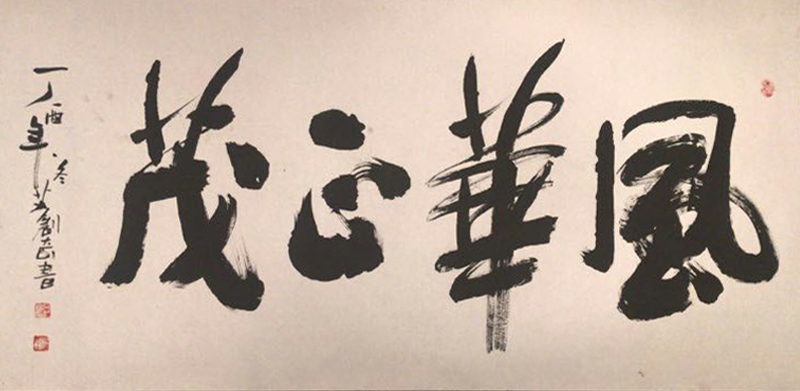 風華正茂
丁酉年冬 書